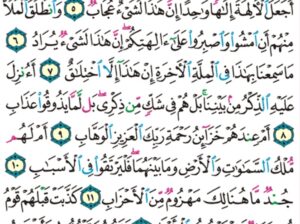 أَجَعَلَ ٱلْأَلِهَةَ إِلَٰهًا وَٰحِدًا إِنَّ هَٰذَا لَشَىْءٌ عُجَابٌ ٥ وَٱنطَلَقَ ٱلْمَلَأُ
مِنْهُمْ أَنِ ٱمْشُوا۟ وَٱصْبِرُوا۟ عَلَىٰٓ ءَالِهَتِكُمْ إِنَّ هَٰذَا لَشَىْءٌ يُرَادُ ٦
مَا سَمِعْنَا بِهَٰذَا فِى ٱلْمِلَّةِ ٱلْأَخِرَةِ إِنْ هَٰذَآ إِلَّا ٱخْتِلَٰقٌ ٧ أَءُنزِلَ
عَلَيْهِ ٱلذِّكْرُ مِنۢ بَيْنِنَا بَلْ هُمْ فِى شَكٍّ مِّن ذِكْرِى بَل لَّمَّا يَذُوقُوا۟ عَذَابِ
٨ أَمْ عِندَهُمْ خَزَآئِنُ رَحْمَةِ رَبِّكَ ٱلْعَزِيزِ ٱلْوَهَّابِ ٩ أَمْ لَهُم
مُّلْكُ ٱلسَّمَٰوَٰتِ وَٱلْأَرْضِ وَمَا بَيْنَهُمَا فَلْيَرْتَقُوا۟ فِى ٱلْأَسْبَٰبِ ١٠
جُندٌ مَّا هُنَالِكَ مَهْزُومٌ مِّنَ ٱلْأَحْزَابِ ١١ كَذَّبَتْ قَبْلَهُمْ قَوْمُ